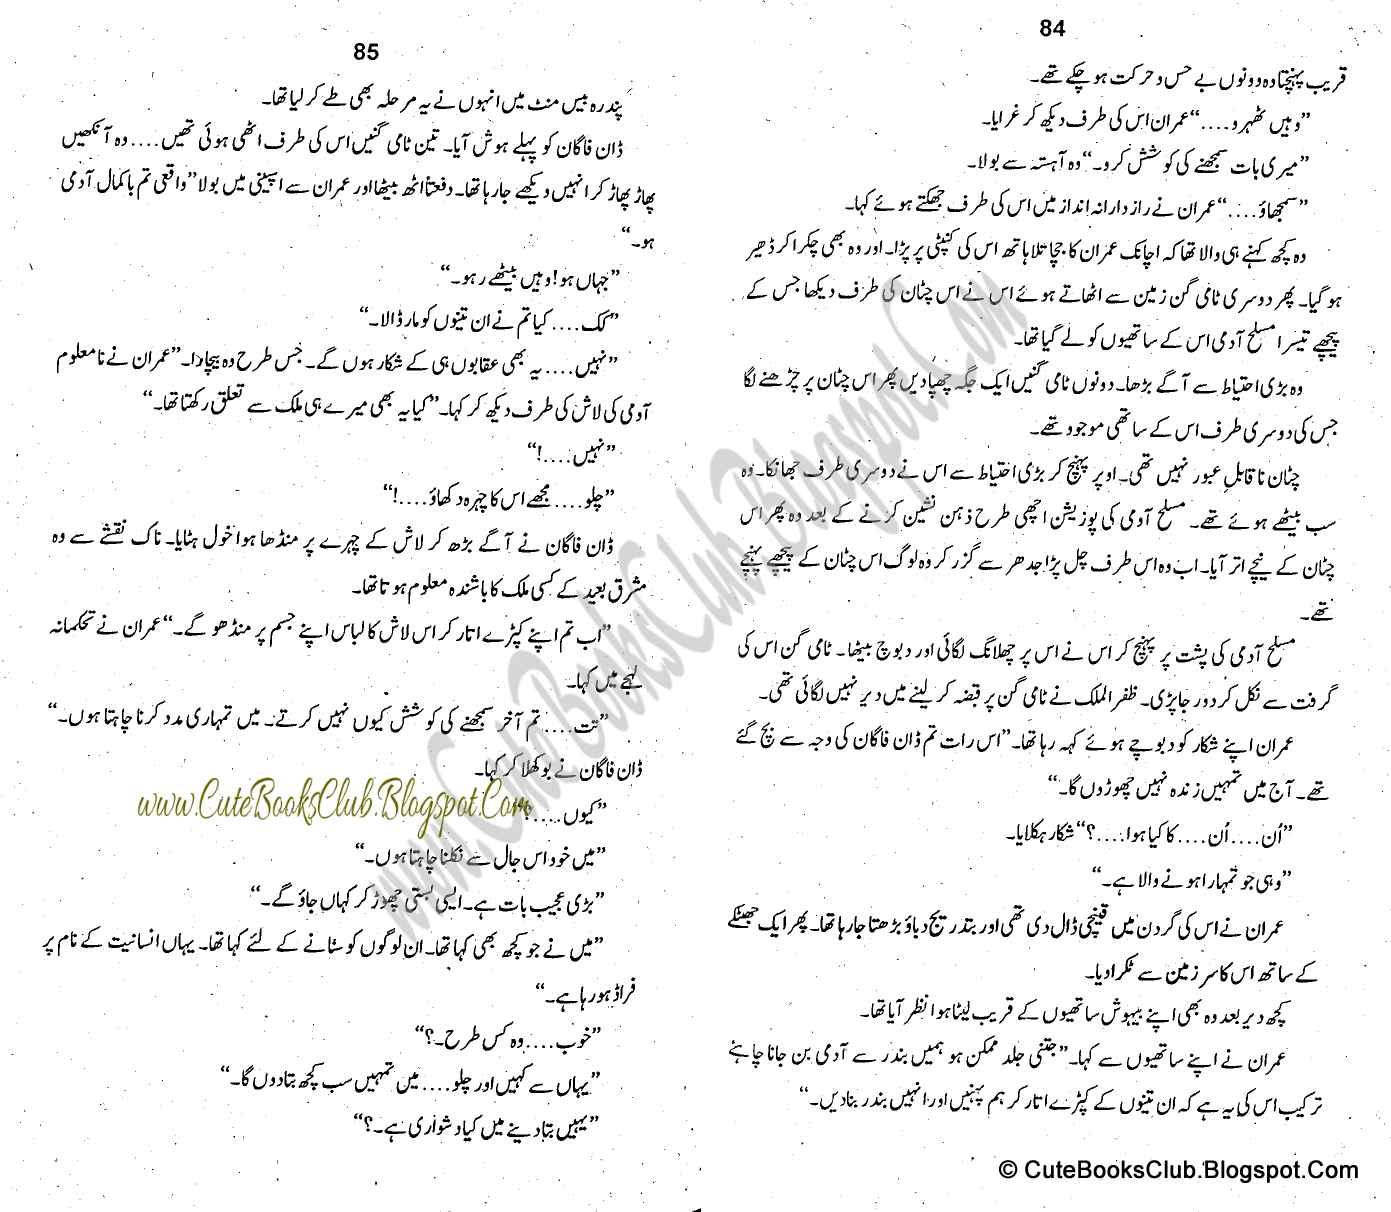 84
قریب پہنچتا وہ دونوں بے حس و حرکت ہو چکے تھے۔
”وہیں ٹھہرو....“ عمران اس کی طرف دیکھ کر غرایا۔
”میری بات سمجھنے کی کوشش کرو۔“ وہ آہستہ سے بولا۔
”سمجھاؤ....“ عمران نے راز دارانہ انداز میں اس کی طرف جھکتے ہوئے کہا۔
وہ کچھ کہنے ہی والا تھا کہ اچانک عمران کا جچا تلا ہاتھ اس کی کنپٹی پر پڑا۔ اور وہ بھی چکرا کر ڈھیر
ہو گیا۔ پھر دوسری ٹامی گن زمین سے اٹھاتے ہوئے اس نے اس چٹان کی طرف دیکھا جس کے
پیچھے تیسرا مسلح آدمی اس کے ساتھیوں کو لے گیا تھا۔
وہ بڑی احتیاط سے آگے بڑھا۔ دونوں ٹامی گنیں ایک جگہ چھپا دیں پھر اس چٹان پر چڑھنے لگا
جس کی دوسری طرف اس کے ساتھی موجود تھے۔
چٹان ناقابل عبور نہیں تھی۔ اوپر پہنچ کر بڑی احتیاط سے اس نے دوسری طرف جھانکا۔ وہ
سب بیٹھے ہوئے تھے۔ مسلح آدمی کی پوزیشن اچھی طرح ذہن نشین کرنے کے بعد وہ پھر اس
چٹان کے نیچے اتر آیا۔ اب وہ اس طرف چل پڑا جدھر سے گزر کر وہ لوگ اس چٹان کے پیچھے پہنچے
تھے۔
مسلح آدمی کی پشت پر پہنچ کر اس نے اس پر چھلانگ لگائی اور دبوچ بیٹھا۔ ٹامی گن اس کی
گرفت سے نکل کر دور جا پڑی۔ ظفر الملک نے ٹامی گن پر قبضہ کر لینے میں دیر نہیں لگائی تھی۔
عمران اپنے شکار کو دبوچے ہوئے کہہ رہا تھا۔ ”اس رات تم ڈان فاگان کی وجہ سے بچ گئے
تھے۔ آج میں تمہیں زندہ نہیں چھوڑوں گا۔“
”اُن.... اُن.... کا کیا ہوا....؟“ شکار ہکلایا۔
”وہی جو تمہارا ہونے والا ہے۔“
عمران نے اس کی گردن میں قینچی ڈال دی تھی اور بتدریج دباؤ بڑھتا جا رہا تھا۔ پھر ایک جھٹکے
کے ساتھ اس کا سر زمین سے ٹکرا دیا۔
کچھ دیر بعد وہ بھی اپنے بیہوش ساتھیوں کے قریب لیٹا ہوا نظر آیا تھا۔
عمران نے اپنے ساتھیوں سے کہا۔ ”جتنی جلد ممکن ہو ہمیں بندر سے آدمی بن جانا چاہئے
ترکیب اس کی یہ ہے کہ ان تینوں کے کپڑے اتار کر ہم پہنیں اور انہیں بندر بنا دیں۔“
85
پندرہ بیس منٹ میں انہوں نے یہ مرحلہ بھی طے کر لیا تھا۔
ڈان فاگان کو پہلے ہوش آیا۔ تین ٹامی گنیں اس کی طرف اٹھی ہوئی تھیں.... وہ آنکھیں
پھاڑ پھاڑ کر انہیں دیکھے جا رہا تھا۔ دفعتاً اٹھ بیٹھا اور عمران سے اسپینی میں بولا ”واقعی تم باکمال آدمی
ہو۔“
”جہاں ہو! وہیں بیٹھے رہو۔“
”کک.... کیا تم نے ان تینوں کو مار ڈالا۔“
”نہیں.... یہ بھی عقابوں ہی کے شکار ہوں گے۔ جس طرح وہ بیچارا۔“ عمران نے نامعلوم
آدمی کی لاش کی طرف دیکھ کر کہا۔ ”کیا یہ بھی میرے ہی ملک سے تعلق رکھتا تھا۔“
”نہیں....!“
”چلو.... مجھے اس کا چہرہ دکھاؤ....!“
ڈان فاگان نے آگے بڑھ کر لاش کے چہرے پر منڈھا ہوا خول ہٹایا۔ ناک نقشے سے وہ
مشرق بعید کے کسی ملک کا باشندہ معلوم ہوتا تھا۔
”اب تم اپنے کپڑے اتار کر اس لاش کا لباس اپنے جسم پر منڈھو گے۔“ عمران نے تحکمانہ
لہجے میں کہا۔
”تت.... تم آخر سمجھنے کی کوشش کیوں نہیں کرتے۔ میں تمہاری مدد کرنا چاہتا ہوں۔“
ڈان فاگان نے بوکھلا کر کہا۔
”کیوں....؟“
”میں خود اس جال سے نکلنا چاہتا ہوں۔“
”بڑی عجیب بات ہے۔ ایسی بستی چھوڑ کر کہاں جاؤ گے۔“
”میں نے جو کچھ بھی کہا تھا۔ ان لوگوں کو سنانے کے لئے کہا تھا۔ یہاں انسانیت کے نام پر
فراڈ ہو رہا ہے۔“
”خوب.... وہ کس طرح۔؟“
”یہاں سے کہیں اور چلو.... میں تمہیں سب کچھ بتا دوں گا۔“
”یہیں بتا دینے میں کیا دشواری ہے۔؟“
www.CuteBooksClub.Blogspot.Com
www.CuteBooksClub.Blogspot.Com
© CuteBooksClub.Blogspot.Com